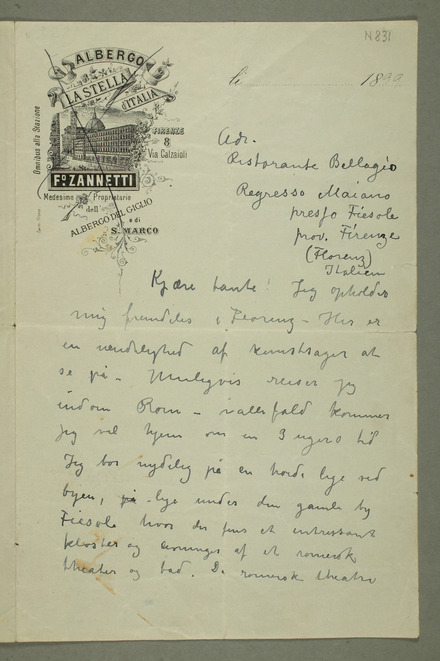 N 831
ALBERGO
LA STELLA
d'ITALIA
FIRENZE
8
Via Calzaioli
Omnibus alla Stazione
Fº. ZANNETTI
Medesimo Proprietario
dell'
ALBERGO DEL GIGLIO
e di
S. MARCO
li 1899
Adr.
Ristorante Bellagio
Regresso Maiano
presso Fiesole
prov. Firenze
(Florenz)
Italien
Kjære tante! Jeg opholder
mig fremdeles i Florenz – Her er
en uendelighed af kunstsager at
se på – Muligvis reiser jeg
indom Rom – ialfald kommer
jeg vel hjem om en 3 ugers tid
Jeg bor nydelig på en høide lige ved
byen, på lige under den gamle by
Fiesole hvor der fins et interessant
kloster og levninger af et romersk
theater og bad. De romersk theatre